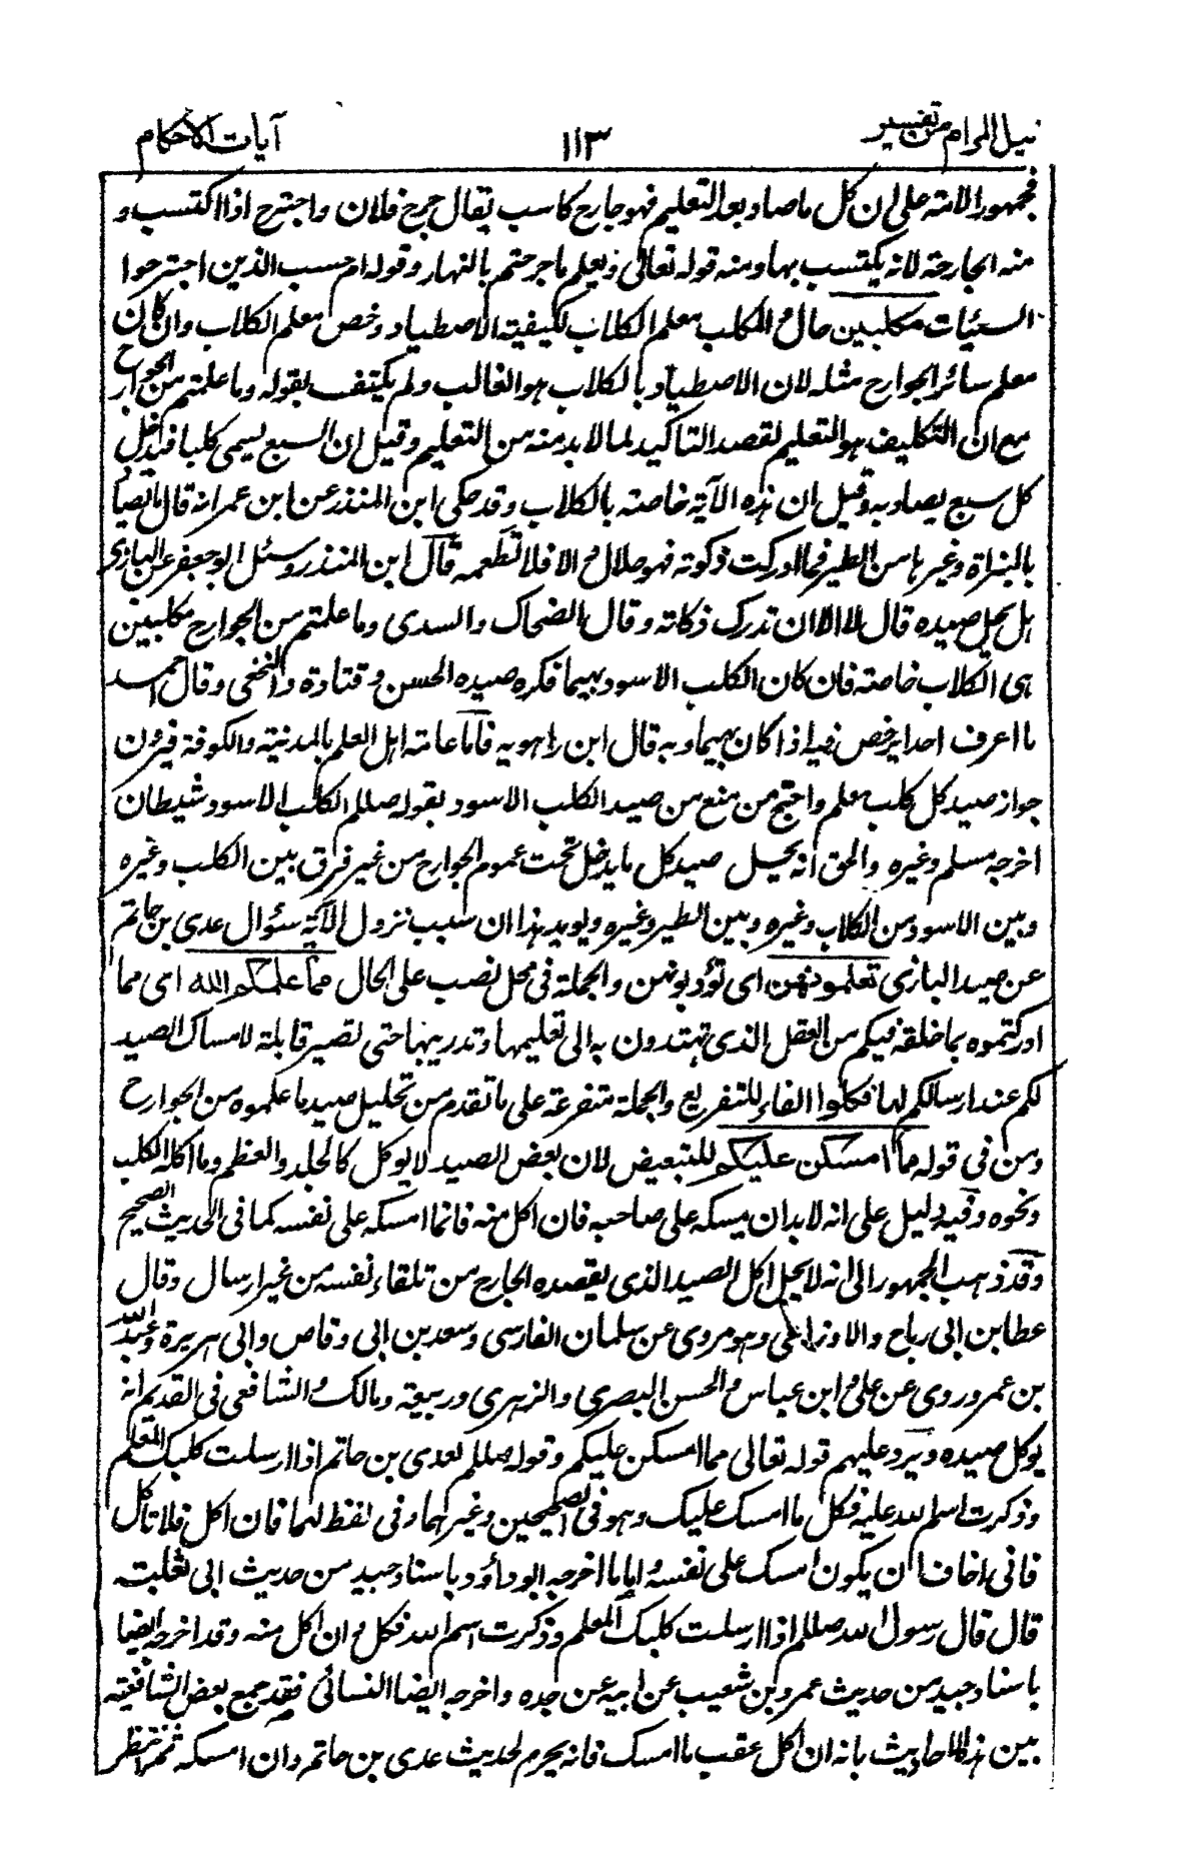 نيل المرام من تفسير ١١٣ آيات الاحكام
فجمهور الامة على ان كل ما صاد بعد التعليم فهو جارح كاسب يقال جرح فلان واجترح اذا اكتسب و
منه الجارحة لانه يكتسب بها ومنه قوله تعالى ويعلم ما جرحتم بالنهار وقوله ام حسب الذين اجترحوا
السيئات مكلبين حال والمكلب معلم الكلاب لكيفية الاصطياد وخص معلم الكلاب وان كان
معلم سائر الجوارح مثله لان الاصطياد بالكلاب هو الغالب ولم يكتف بقوله وما علمتم من الجوارح
مع ان التكليف هو التعليم لقصد التاكيد لما لا بد منه من التعليم وقيل ان السبع يسمى كلبا فيدخل
كل سبع يصاد به وقيل ان هذه الآية خاصة بالكلاب وقد حكى ابن المنذر عن ابن عمر انه قال ما يصاد
بالبزاة وغيرها من الطير فما ادركت ذكوته فهو حلال والا فلا تطعمه قال ابن المنذر وسئل ابو جعفر عن البازي
هل يحل صيده قال لا الا ان تدرك ذكاته وقال الضحاك والسدى وما علمتم من الجوارح مكلبين
هى الكلاب خاصة فان كان الكلب الاسود بهيما فكره صيده الحسن وقتادة والنخعى وقال احمد
ما اعرف احدا يرخص فيه اذا كان بهيما وبه قال ابن راهويه فاما عامة اهل العلم بالمدينة والكوفة فيرون
جواز صيد كل كلب معلم واحتج من منع من صيد الكلب الاسود بقوله صللم الكلب الاسود شيطان
اخرجه مسلم وغيره والحق انه يحل صيد كل ما يدخل تحت عموم الجوارح من غير فرق بين الكلب وغيره
وبين الاسود من الكلاب وغيره وبين الطير وغيره ويويد هذا ان سبب نزول الآية سئوال عدى بن حاتم
عن صيد البازى تعلمونهن اى تؤدبونهن والجملة فى محل نصب على الحال مما علمكم الله اى مما
ادركتموه بما خلقه فيكم من العقل الذى تهتدون به الى تعليمها وتدريبها حتى تصير قابلة لامساك الصيد
لكم عند ارسالكم لها فكلوا الفاء للتفريع والجملة متفرعة على ما تقدم من تحليل صيد ما علموه من الجوارح
ومن فى قوله مما امسكن عليكم للتبعيض لان بعض الصيد لا يوكل كالجلد والعظم وما اكله الكلب
ونحوه وفيه دليل على انه لا بد ان يمسكه على صاحبه فان اكل منه فانما امسكه على نفسه كما فى الحديث الصحيح
وقد ذهب الجمهور الى انه لا يحل اكل الصيد الذى يقصده الجارح من تلقاء نفسه من غير ارسال وقال
عطا بن ابى رباح والاوزاعى وهو مروى عن سلمان الفارسى وسعد بن ابى وقاص وابى هريرة وعبد الله
بن عمر وروى عن على وابن عباس والحسن البصرى والزهرى وربيعة ومالك والشافعى فى القديم انه
يوكل صيده ويرد عليهم قوله تعالى مما امسكن عليكم وقوله صللم لعدى بن حاتم اذا ارسلت كلبك المعلم
وذكرت اسم الله عليه فكل ما امسك عليك وهو فى الصحيحين وغيرهما وفى لفظ لهما فان اكل فلا تاكل
فانى اخاف ان يكون امسك على نفسه واما ما اخرجه ابو داؤد باسناد جيد من حديث ابى ثعلبة
قال قال رسول الله صللم اذا ارسلت كلبك المعلم وذكرت اسم الله فكل وان اكل منه وقد اخرجه ايضا
باسناد جيد من حديث عمرو بن شعيب عن ابيه عن جده واخرجه ايضا النسائى فقد جمع بعض الشافعية
بين هذه الاحاديث بانه ان اكل عقب ما امسك فانه يحرم لحديث عدى بن حاتم وان امسكه ثم انتظر